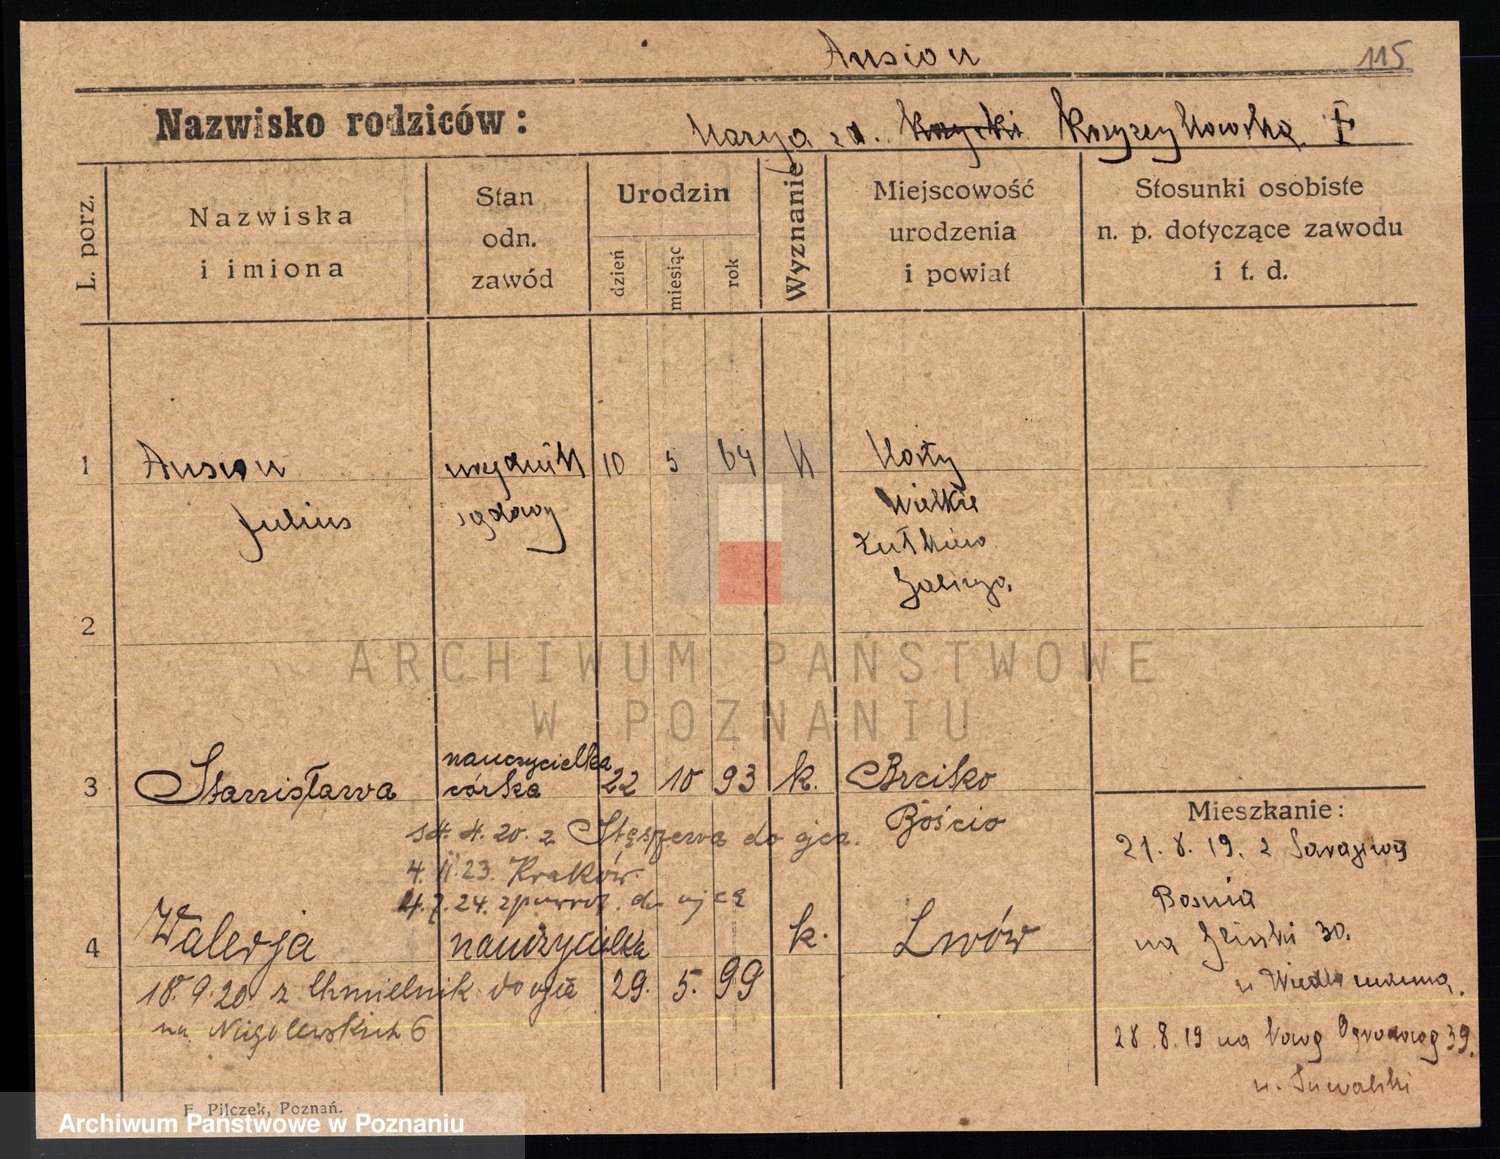 Ansion 115
Nazwisko rodziców:
Marya zd. Krzyżykowska F
L. porz.
Nazwiska
i imiona
Stan
odn.
zawód
Urodzin
dzień
miesiąc
rok
Wyznanie
Miejscowość
urodzenia
i powiat
Stosunki osobiste
n. p. dotyczące zawodu
i t. d.
1 Ansion urzędnik 10 5 64 k Mosty
Julius sądowy Wielkie
Galicya.
2
nauczycielka
3 Stanisława córka 22 10 93 k. Brcisko
Bośnio
4. 20. z Stęszewa do ojca.
4. II. 23. Kraków
4. 7. 24. z powrot. do ojca
4 Walerja nauczycielka k. Lwów
18. 9. 20. z Chmielnik do ojca 29. 5. 99
na Niegolewskich 6
Mieszkanie:
21. 8. 19. z Sarajewa
Bosnia
na Gliński 30.
u Wiedlomanna.
28. 8. 19 na Nowog Ogrodowog 39.
u. Suwalski
F. Pilczek, Poznań.
ARCHIWUM PAŃSTWOWE
W POZNANIU
Archiwum Państwowe w Poznaniu